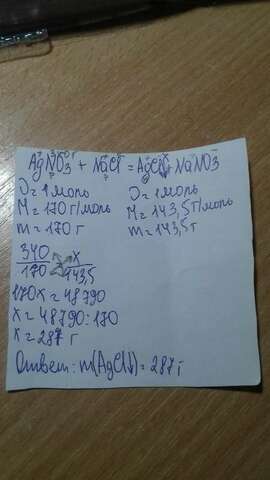 340 г x
AgNO3 + NaCl = AgCl↓ + NaNO3
υ = 1 моль υ = 1 моль
M = 170 г/моль M = 143,5 г/моль
m = 170 г m = 143,5 г
340/170 = x/143,5
170x = 48790
x = 48790 : 170
x = 287 г
Ответ: m(AgCl↓) = 287 г